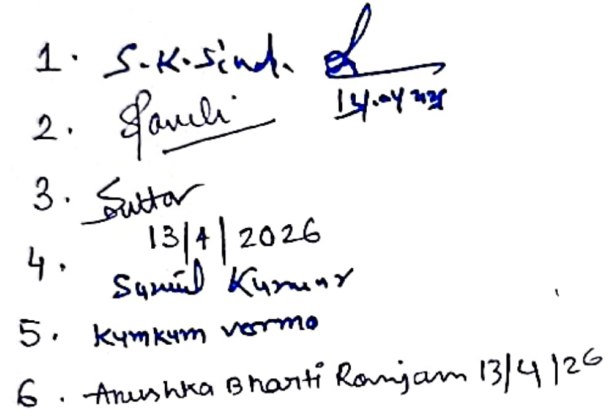 1. S.K. Singh.
2.
3. Suttar
13/4/2026
4. Sunil Kumar
5. Kumkum verma
6. Anushka Bharti Ranjan 13/4/26